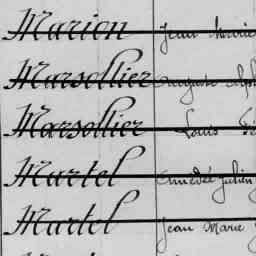 Marion Jean Marie
Marsollier Auguste Alph
Marsollier Louis
Martel Amédée Julien
Martel Jean Marie